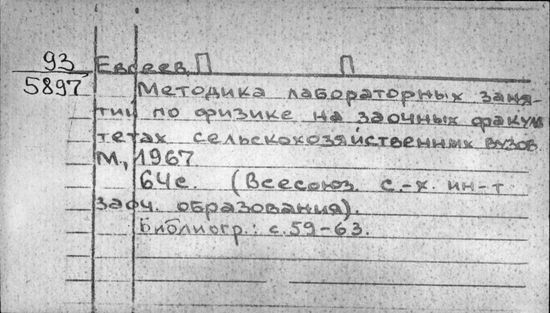 93
5897
Евсеев П П
Методика лабораторных заня-
тий по физике на заочных факуль
тетах сельскохозяйственных вузов
М., 1967
64с. (Всесоюз. с.-х. ин-т
заоч. образования).
Библиогр.: с.59-63.